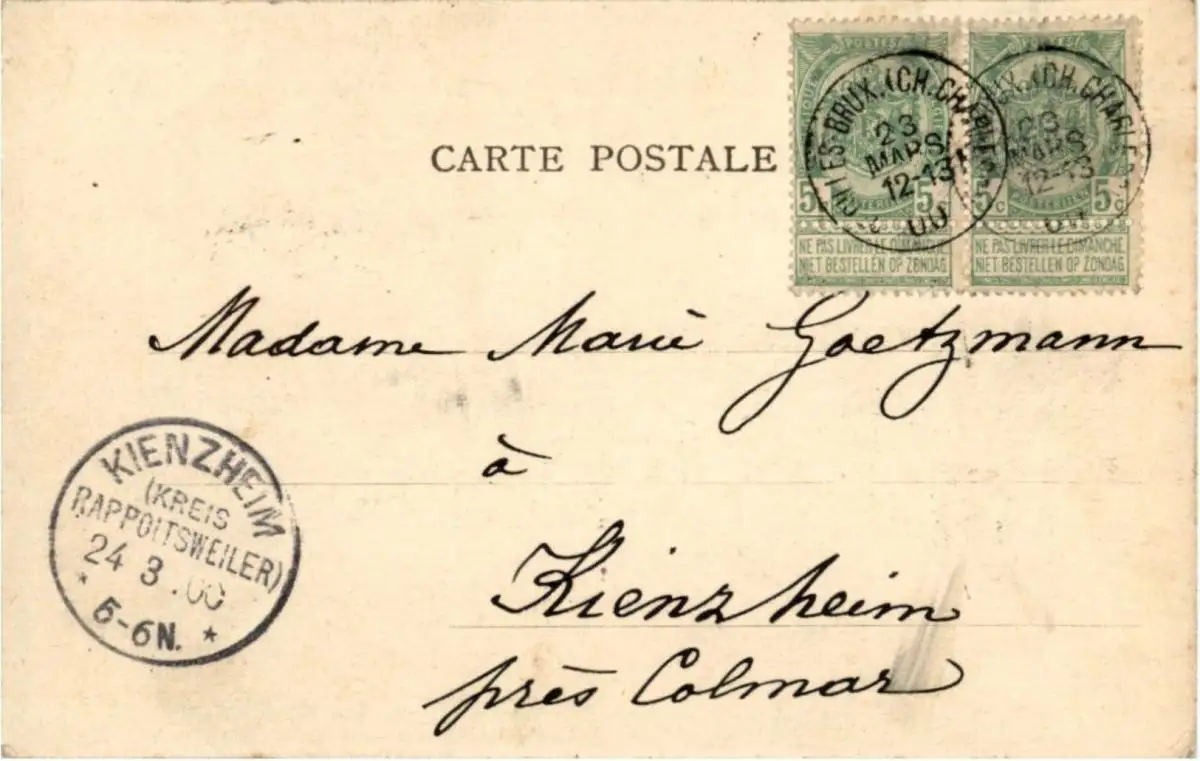 CARTE POSTALE
POSTES
5 c 5 c
NE PAS LIVRER LE DIMANCHE
NIET BESTELLEN OP ZONDAG
5 c 5 c
NE PAS LIVRER LE DIMANCHE
NIET BESTELLEN OP ZONDAG
GILLES-BRUX. (CH. CHARLEROI)
23
MARS
12-13
00
BRUX. (CH. CHARLEROI)
23
MARS
12-13
00
Madame Marie Goetzmann
à
Kienzheim
près Colmar
KIENZHEIM
(KREIS
RAPPOLTSWEILER)
24 3 .00
* 5-6N. *